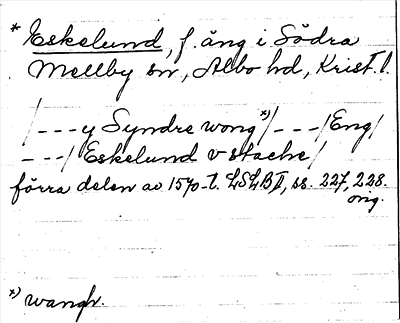 * Eskelund, f. äng i Södra
Mellby sn, Albo hd, Krist. l.
/---y Syndre wong*)/---/Eng/
---/Eskelund v stache/
förra delen av 1570-t. LSLB II, ss. 227, 228.
orig.
*) wangh.